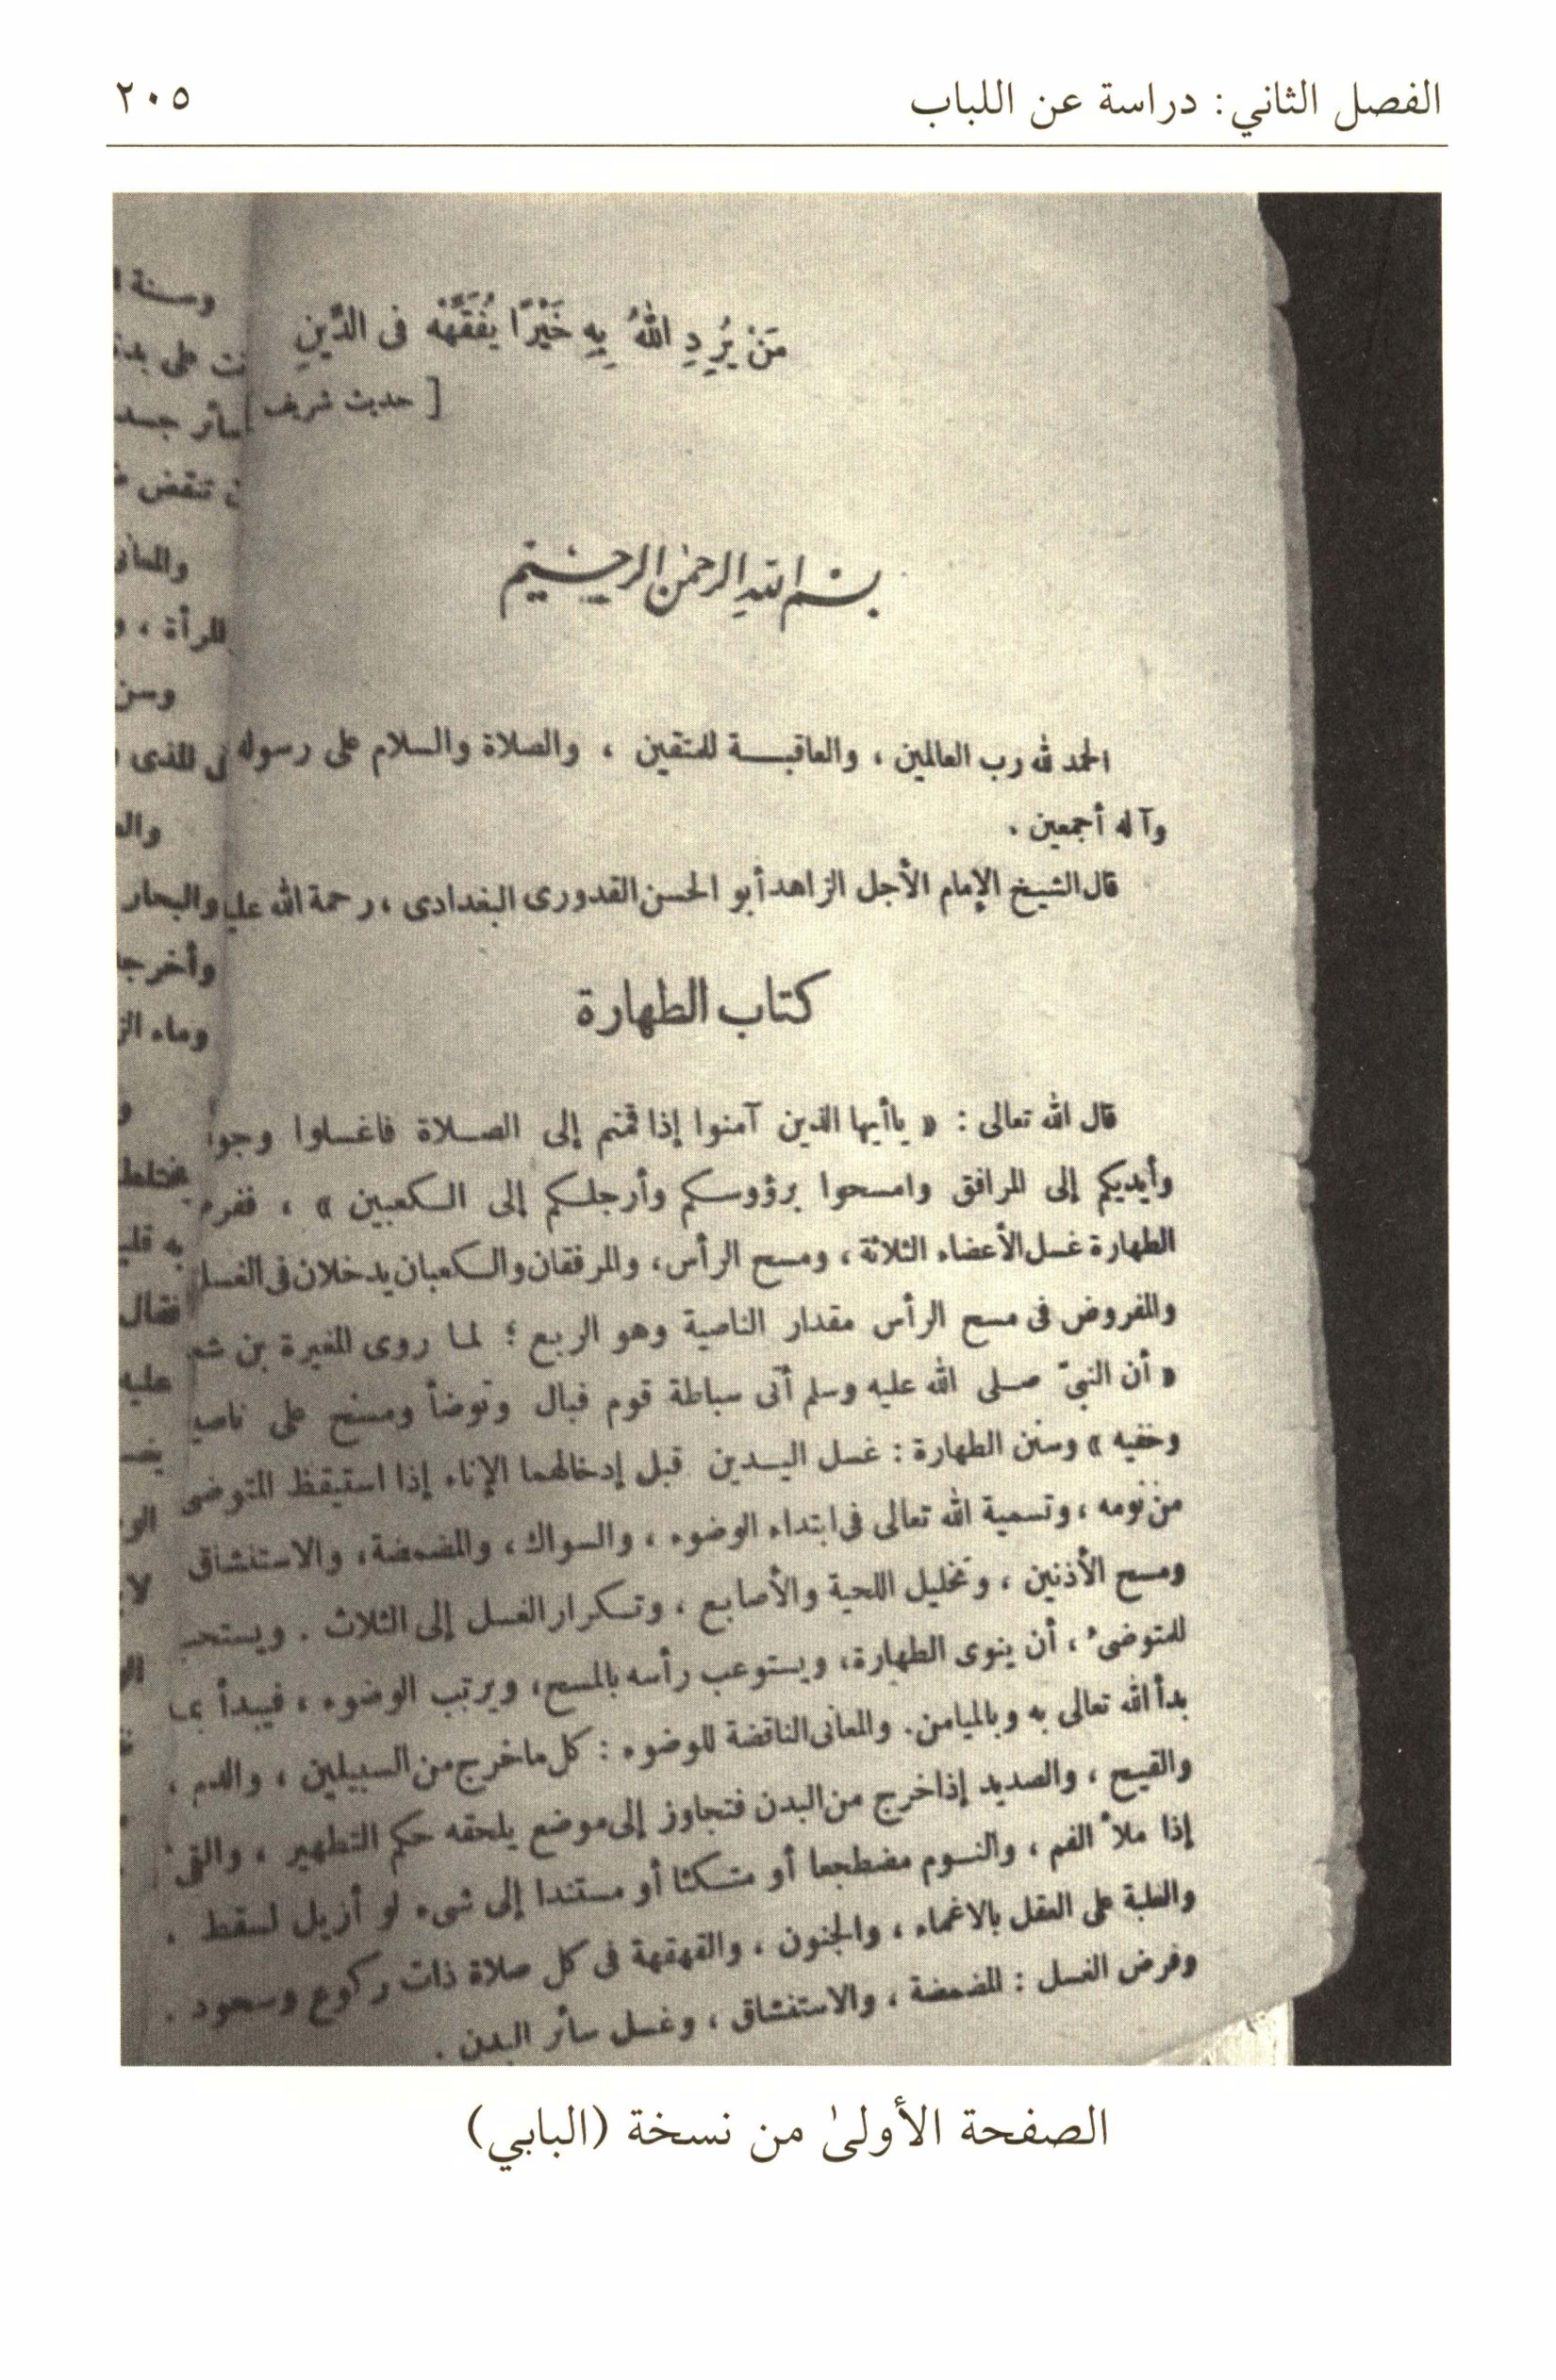 الفصل الثاني: دراسة عن اللباب
٢٠٥
مَنْ يُرِدِ اللهُ بِهِ خَيْرًا يُفَقِّهْهُ فى الدِّينِ
[ حديث شريف ]
بسم الله الرحمن الرحيم
الحمد لله رب العالمين ، والعاقبة للمتقين ، والصلاة والسلام على رسوله
وآله أجمعين .
قال الشيخ الإمام الأجل الزاهد أبو الحسن القدورى البغدادى ، رحمة الله
كتاب الطهارة
قال الله تعالى : « ياأيها الذين آمنوا إذا قمتم إلى الصلاة فاغسلوا
وأيديكم إلى المرافق وامسحوا برؤوسكم وأرجلكم إلى الكعبين » ،
الطهارة غسل الأعضاء الثلاثة ، ومسح الرأس ، والمرفقان والكعبان يدخلان فى الغسل
والمفروض فى مسح الرأس مقدار الناصية وهو الربع ؛ لما روى المغيرة بن
« أن النبىّ صلى الله عليه وسلم أتى سباطة قوم فبال وتوضأ ومسح على
وخفيه » وسنن الطهارة : غسل اليدين قبل إدخالهما الإناء إذا استيقظ المتوضى
من نومه ، وتسمية الله تعالى فى ابتداء الوضوء ، والسواك ، والمضمضة ، والاستنشاق
ومسح الأذنين ، وتخليل اللحية والأصابع ، وتكرار الغسل إلى الثلاث .
للمتوضىء ، أن ينوى الطهارة ، ويستوعب رأسه بالمسح ، ويرتب الوضوء ، فيبدأ بما
بدأ الله تعالى به وبالميامن . والمعانى الناقضة للوضوء : كل ما خرج من السبيلين ، والدم ،
والقيح ، والصديد إذا خرج من البدن فتجاوز إلى موضع يلحقه حكم التطهير ، والقىء
إذا ملأ الفم ، والنوم مضطجعا أو متكئا أو مستندا إلى شىء لو أزيل لسقط ،
والغلبة على العقل بالاغماء ، والجنون ، والقهقهة فى كل صلاة ذات ركوع وسجود .
وفرض الغسل : المضمضة ، والاستنشاق ، وغسل سائر البدن .
الصفحة الأولىٰ من نسخة (البابي)